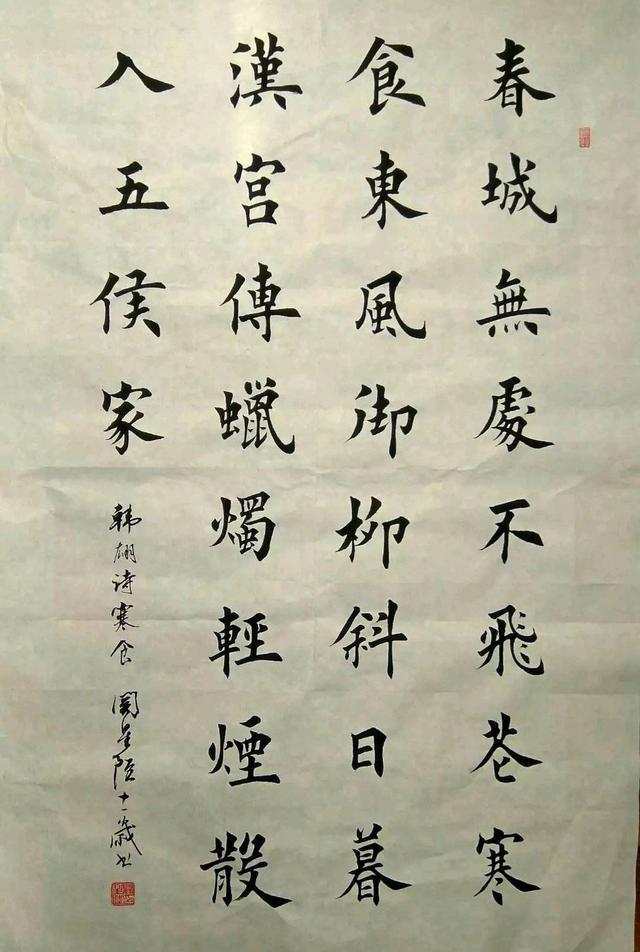 春城無處不飛花寒
食東風御柳斜日暮
漢宮傳蠟燭輕煙散
入五侯家
韩翃诗寒食 星 十一歲书